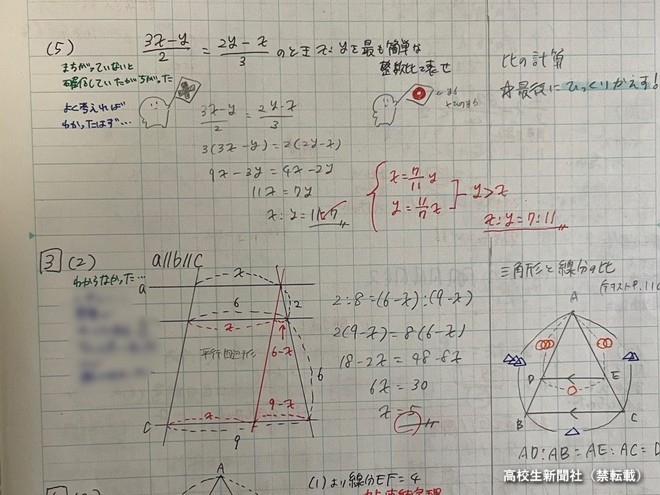 (5) 3x-y/2 = 2y-x/3 のとき x:yを最も簡単な
整数比で表せ
まちがっていないと
確信していたがちがった
よく考えれば
わかったはず…
3x-y/2 = 2y-x/3
3(3x-y)=2(2y-x)
9x-3y=4x-2y
11x=7y
x:y=11:7
x=7/11 y
y=11/7 x
y>x
x:y=7:11
比の計算
☆最後にひっくりかえす!
3 (2) a//b//c
わからなかった…
a
x
6
x
2
平行四辺形
6-x
6
c
x
9-x
9
2:8=(6-x):(9-x)
2(9-x)=8(6-x)
18-2x=48-8x
6x=30
x=5
三角形と線分の比
A
D
E
B
C
AD:AB=AE:AC=D
A
(1)より線分EF=4
高校生新聞社(禁転載)